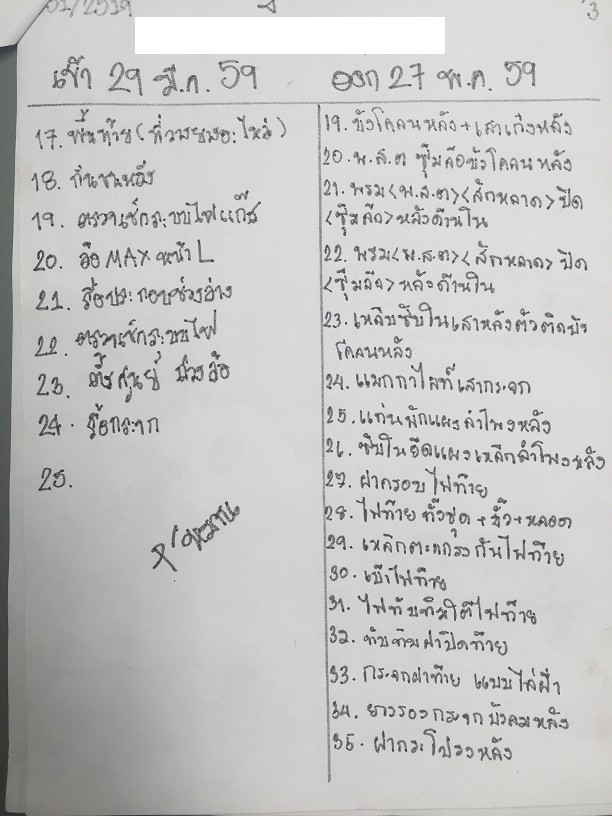 3
เข้า 29 มี.ค. 59
17. พื้นท้าย (ที่วางยางอะไหล่)
18. กันชนหลัง
19. ตรวจเช็กระบบไฟแก๊ส
20. ล้อ MAX หน้า L
21. รื้อประกอบช่วงล่าง
22. ตรวจเช็กระบบไฟ
23. ตั้งศูนย์ ถ่วงล้อ
24. รื้อกระจก
25.
ออก 27 พ.ค. 59
19. บังโคลนหลัง + เสาเก๋งหลัง
20. พ.ส.ต ซุ้มล้อบังโคลนหลัง
21. พรม <พ.ส.ต> <สักหลาด> ปิด
<ซุ้มล้อ> หลังด้านใน
22. พรม <พ.ส.ต> <สักหลาด> ปิด
<ซุ้มล้อ> หลังด้านใน
23. เหล็บซับในเสาหลังตัวติดบัง
โคลนหลัง
24. แมกกาไลท์เสากระจก
25. แท่นพักแผงลำโพงหลัง
26. ซับในยึดแผงเหล็กลำโพงหลัง
27. ฝาครอบไฟท้าย
28. ไฟท้าย ทั้งชุด + ขั้ว + หลอด
29. เหล็กตะแกรงกันไฟท้าย
30. เบ้าไฟท้าย
31. ไฟทับทิมใต้ไฟท้าย
32. ทับทิมฝาปิดท้าย
33. กระจกฝาท้าย แบบไล่ฝ้า
34. ยางรองกระจกบังลมหลัง
35. ฝากระโปรงหลัง